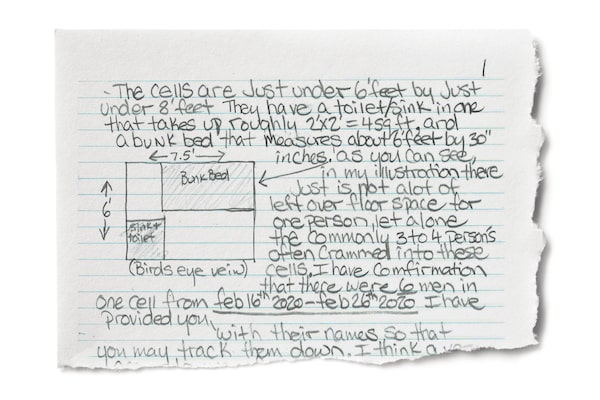 1
- The cells are Just under 6' feet by Just
under 8' feet They have a toilet/sink in one
that takes up roughly 2'x2' = 4sq ft. and
a bunk bed that measures about 6' feet by 30"
inches. as you can see,
← 7.5' →
Bunk Bed
in my illustration there
Just is not alot of
left over floor space for
6'
one person let alone
sink +
toilet
the commonly 3 to 4 person's
often crammed into these
(Birds eye veiw)
cells. I have comfirmation
that there were 6 men in
one cell from feb 16th 2020 - feb 26th 2020 I have
provided you with their names so that
you may track them down. I think a